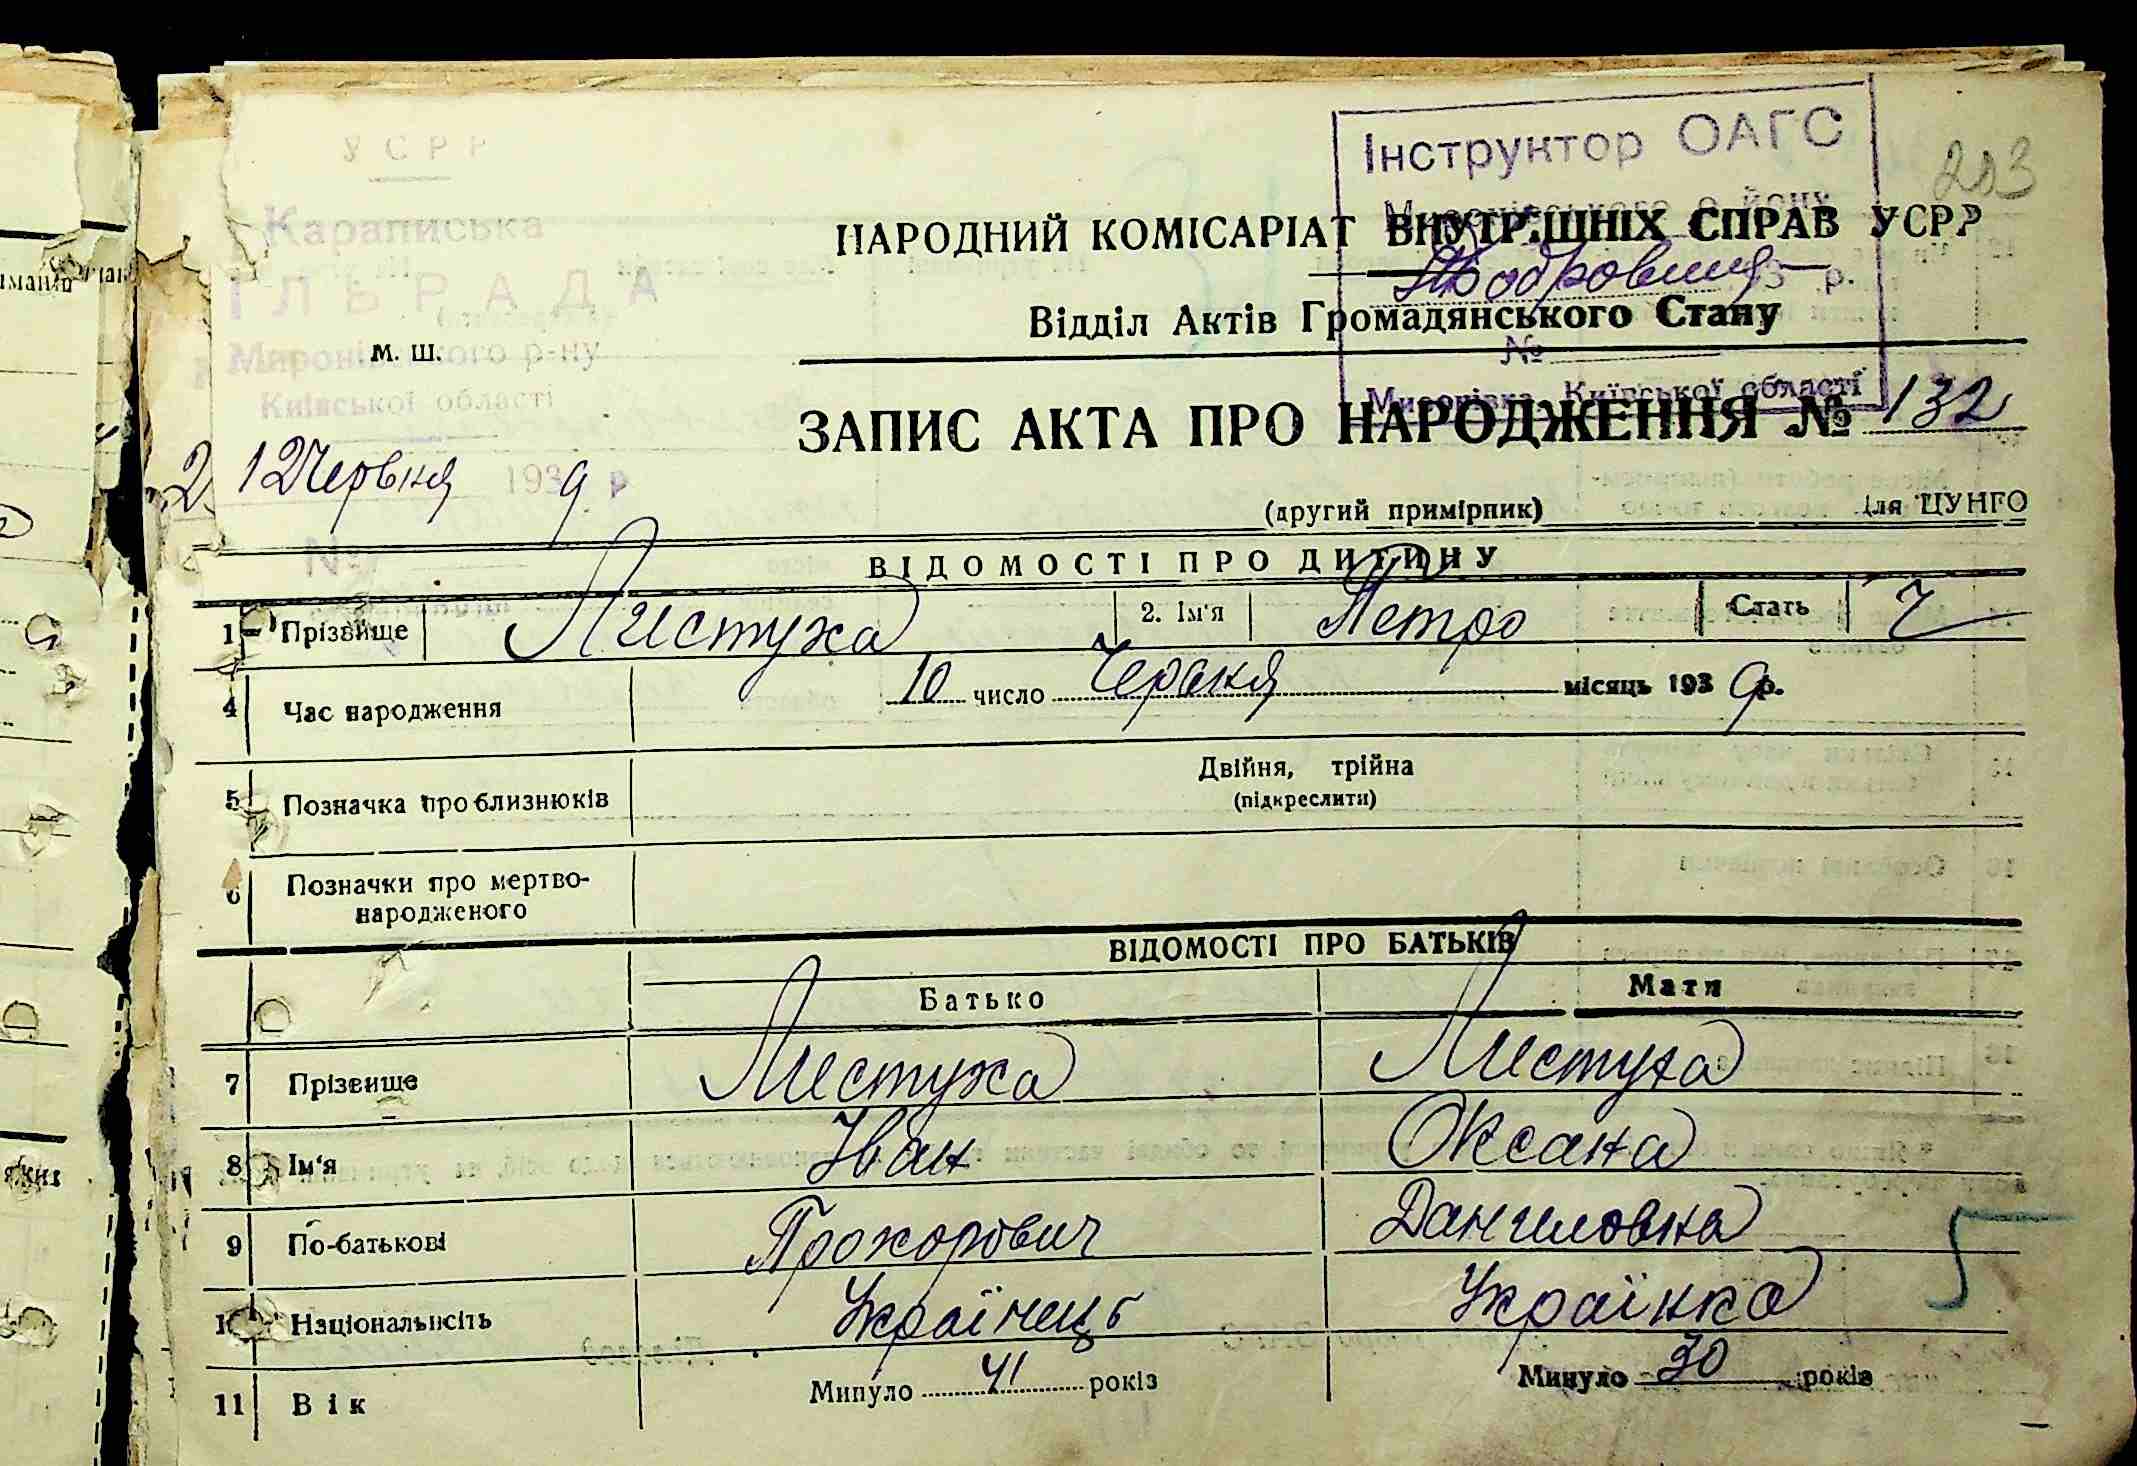 УСРР
Караписька
ІЛЬРАДА
Миронівського р-ну
Київської області
м. ш.
12 Червня 1939 р
№
Інструктор ОАГС
Миронівського району
203
НАРОДНИЙ КОМІСАРІАТ ВНУТРІШНІХ СПРАВ УСРР
193 р.
Відділ Актів Громадянського Стану
№
Миронівка, Київської області
ЗАПИС АКТА ПРО НАРОДЖЕННЯ № 132
(другий примірник) Для ЦУНГО
ВІДОМОСТІ ПРО ДИТИНУ
1 Прізвище Листуха 2. Ім'я Петро Стать Ч
4 Час народження 10 число Червня місяць 1939 р.
5 Позначка про близнюків Двійня, трійна
(підкреслити)
6 Позначки про мертво-
народженого
ВІДОМОСТІ ПРО БАТЬКІВ
Батько Мати
7 Прізвище Листуха Листуха
8 Ім'я Іван Оксана
9 По-батькові Прохорович Даниловна
10 Національність Українець Українка
5
11 Вік Минуло 41 років Минуло 30 років